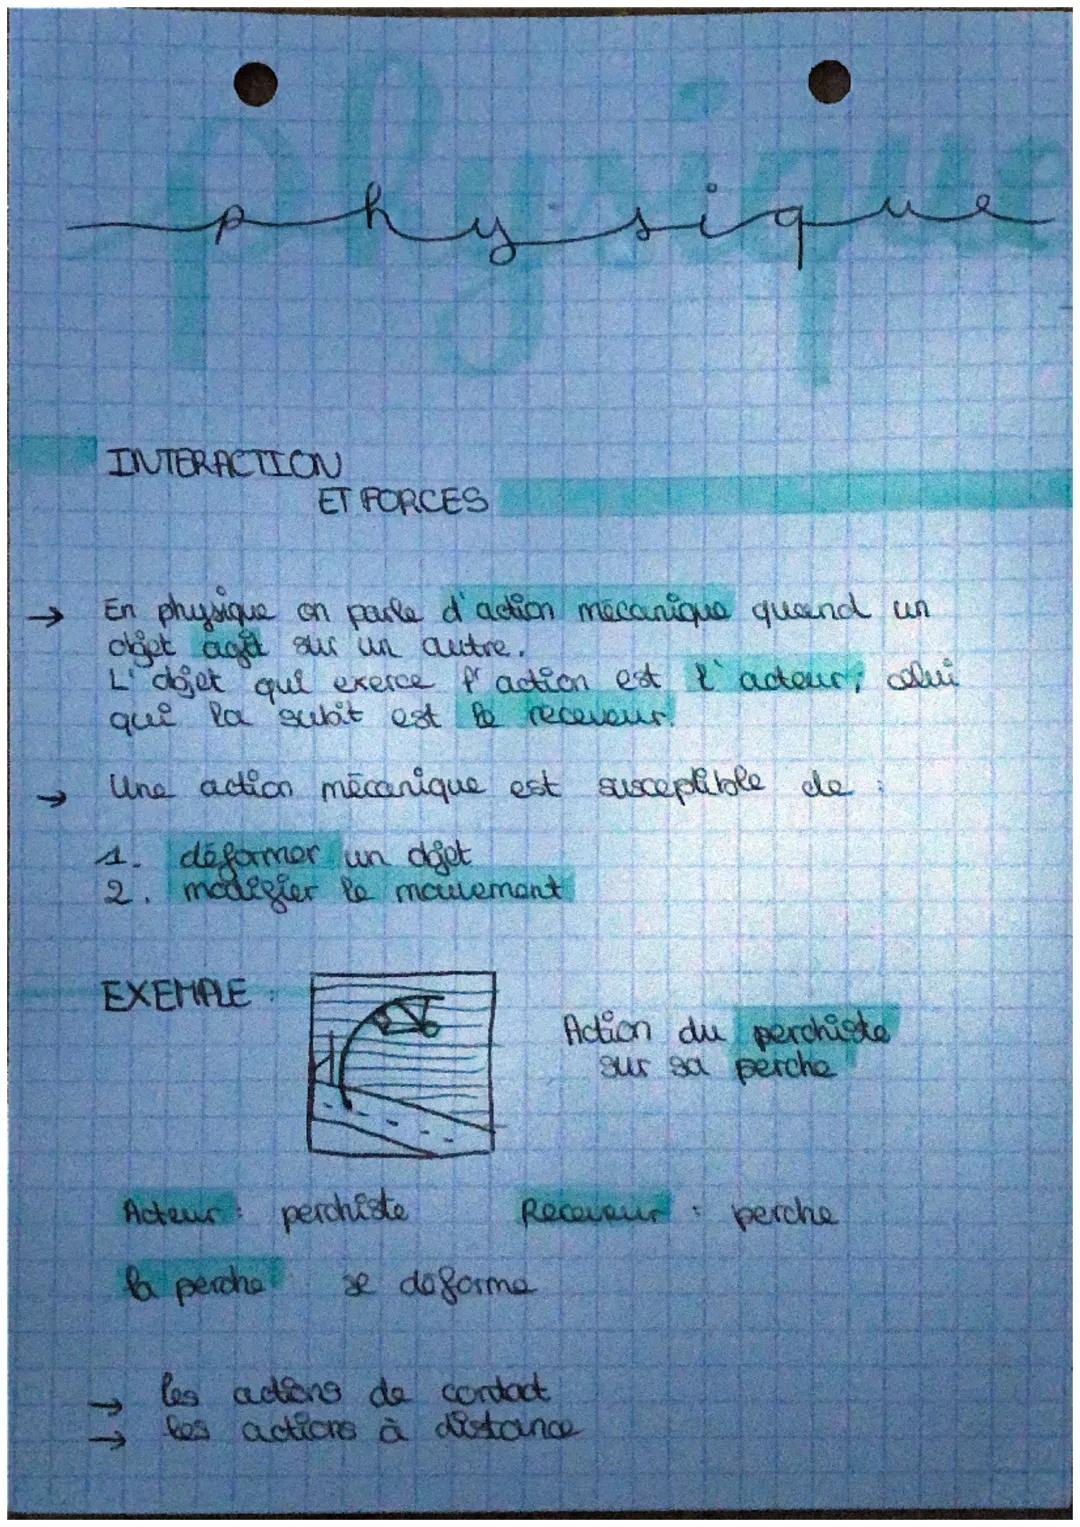 physique
physique
INTERACTION
ET FORCES
→ En physique on parle d'action mécanique quand un
objet agit sur un autre.
L'objet qui exerce l'action est l'acteur, celui
qui la subit est le receveur.
→ Une action mécanique est susceptible de :
1. déformer un objet
2. modifier le mouvement
EXEMPLE :
Action du perchiste
sur sa perche
Acteur : perchiste Receveur : perche
la perche se déforme
→ les actions de contact
→ les actions à distance